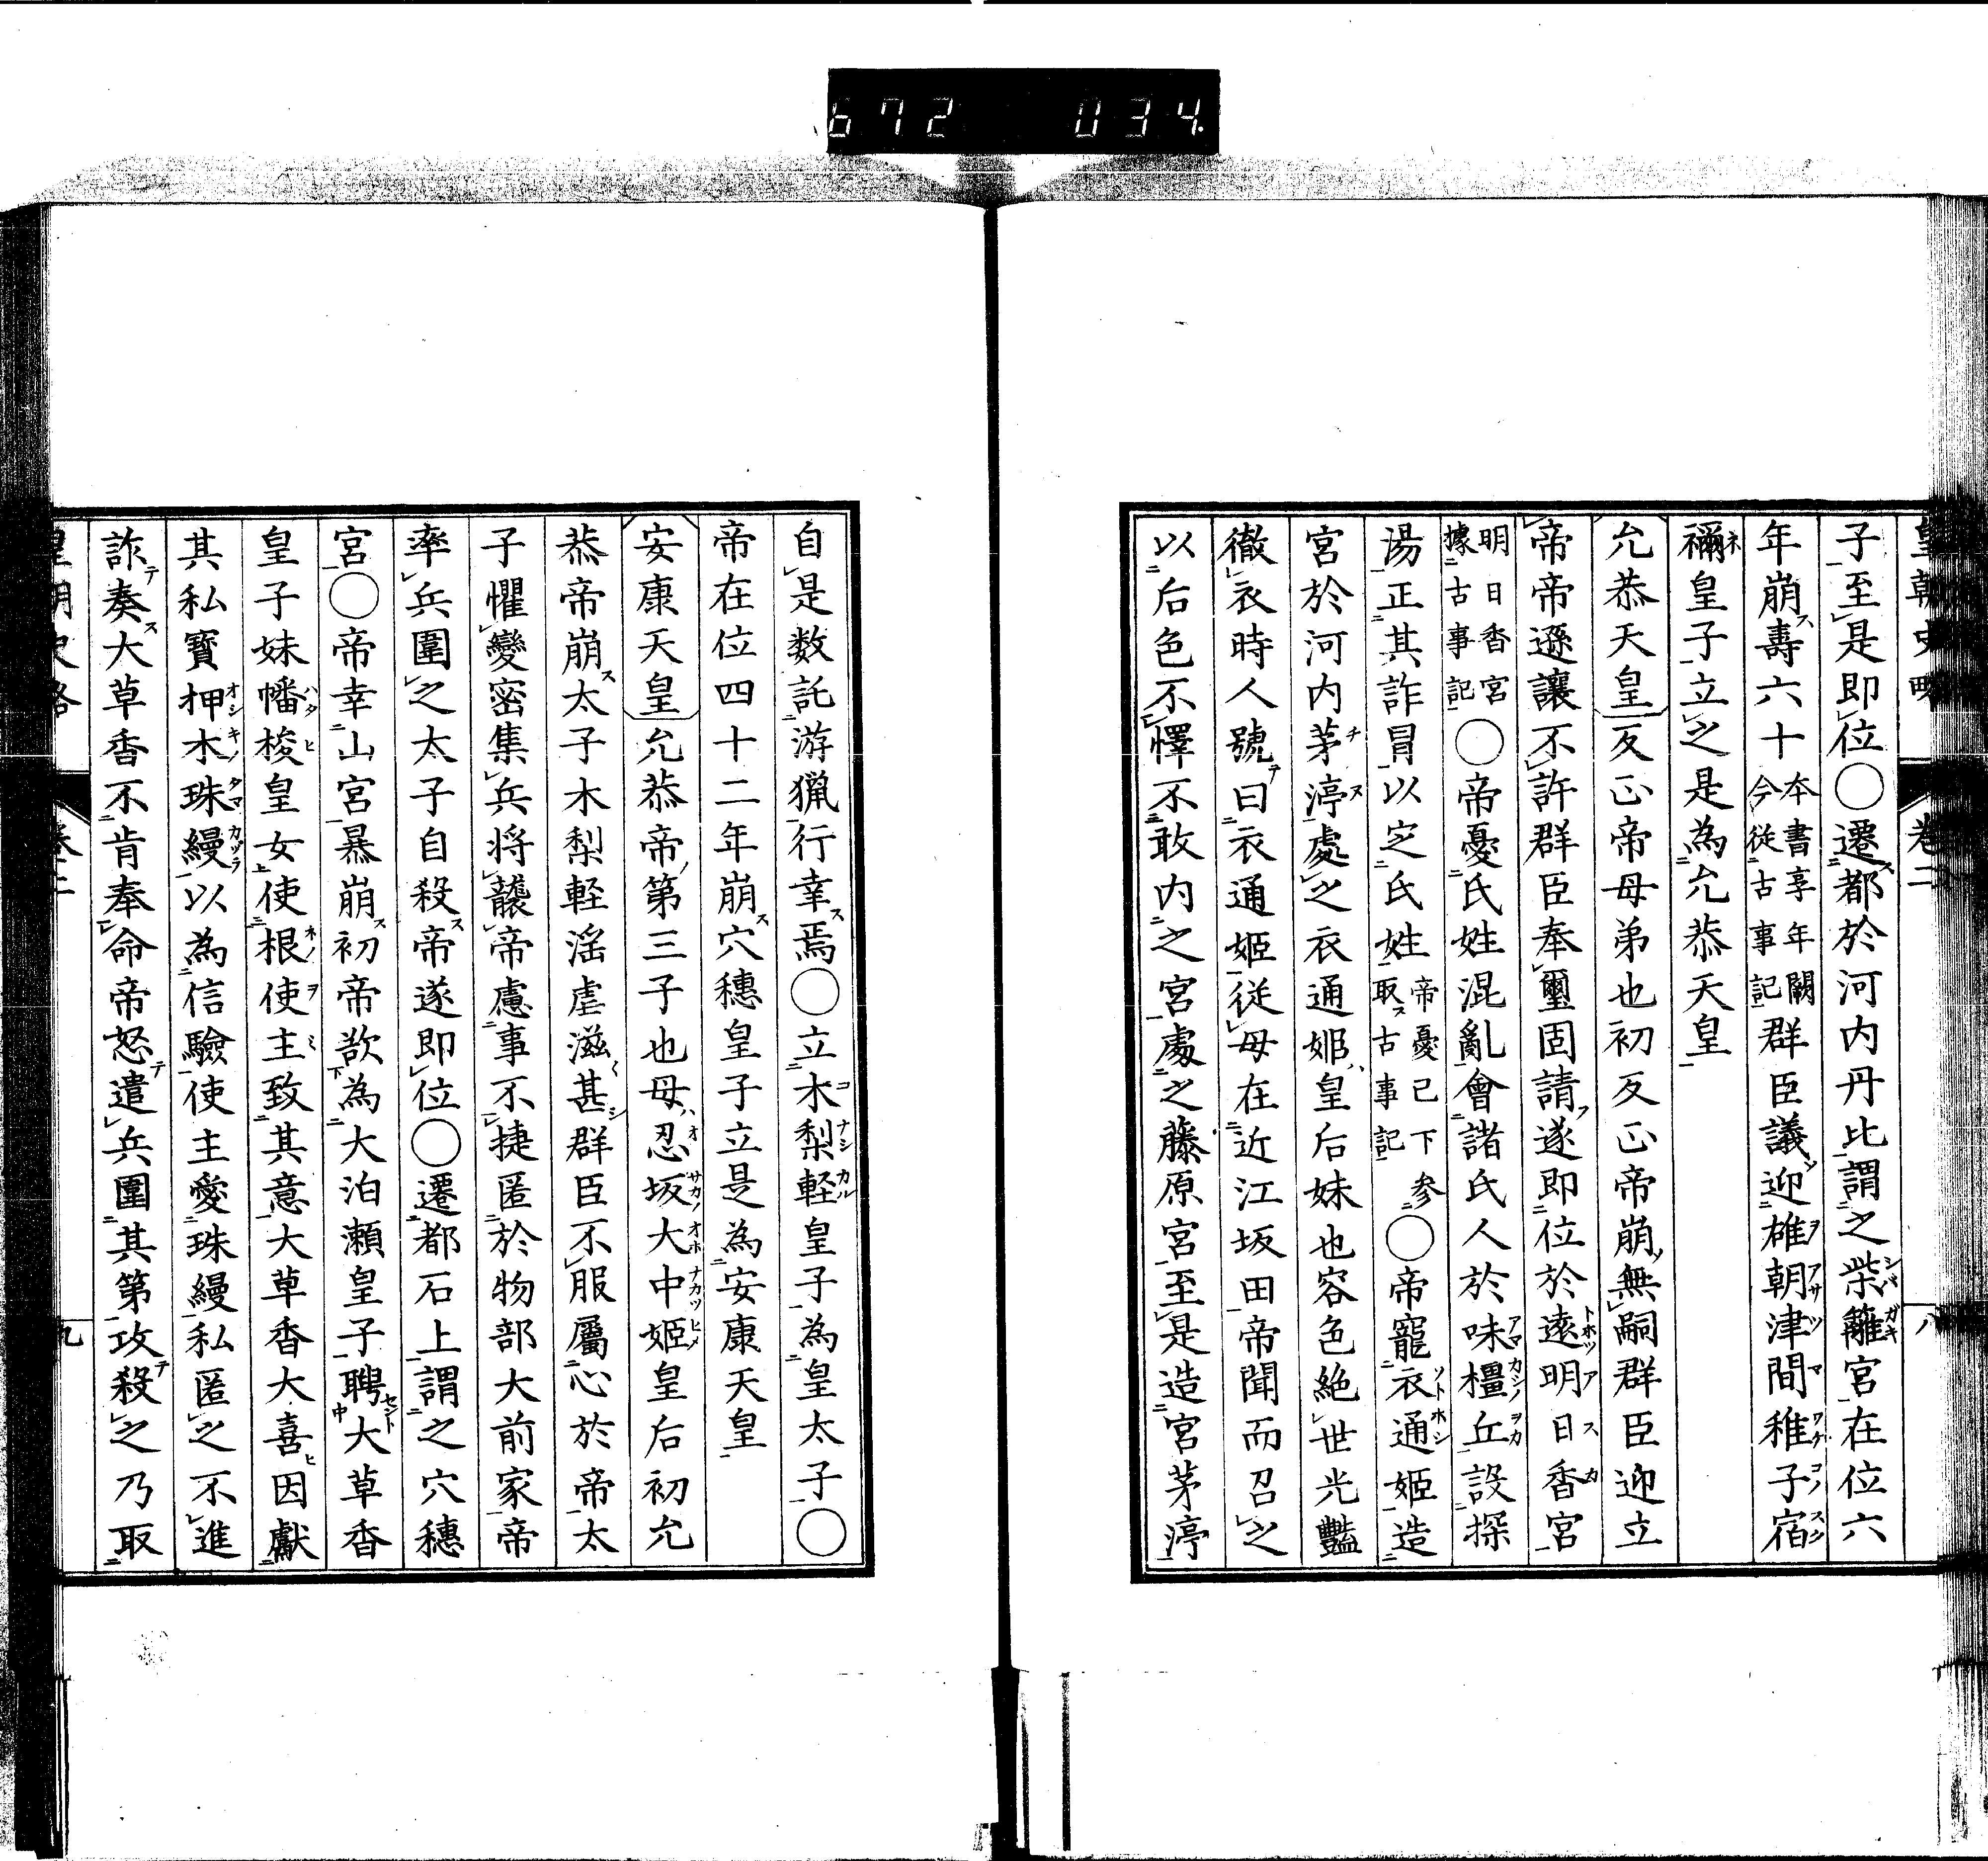 672 034
皇朝史略 卷二 八
子至是即位○遷都於河内丹比謂之柴籬宮在位六
年崩壽六十本書享年闕今從古事記群臣議迎雄朝津間稚子宿
禰皇子立之是為允恭天皇
允恭天皇反正帝母弟也初反正帝崩無嗣群臣迎立
帝帝遜讓不許群臣奉璽固請遂即位於遠明日香宮
明日香宮據古事記○帝憂氏姓混亂會諸氏人於味橿丘設探
湯正其詐冒以定氏姓帝憂已下参取古事記○帝寵衣通姬造
宮於河内茅渟處之衣通姬皇后妹也容色絶世光豔
徹衣時人號曰衣通姬從母在近江坂田帝聞而召之
以后色不懌不敢内之宮處之藤原宮至是造宮茅渟
自是数託游獵行幸焉○立木梨軽皇子為皇太子○
帝在位四十二年崩穴穗皇子立是為安康天皇
安康天皇允恭帝第三子也母忍坂大中姬皇后初允
恭帝崩太子木梨軽淫虐滋甚群臣不服屬心於帝太
子懼變密集兵將襲帝慮事不捷匿於物部大前家帝
率兵圍之太子自殺帝遂即位○遷都石上謂之穴穗
宮○帝幸山宮暴崩初帝欲為大泊瀬皇子聘大草香
皇子妹幡梭皇女使根使主致其意大草香大喜因獻
其私寶押木珠縵以為信驗使主愛珠縵私匿之不進
詐奏大草香不肯奉命帝怒遣兵圍其第攻殺之乃取
皇朝史略 卷二 九